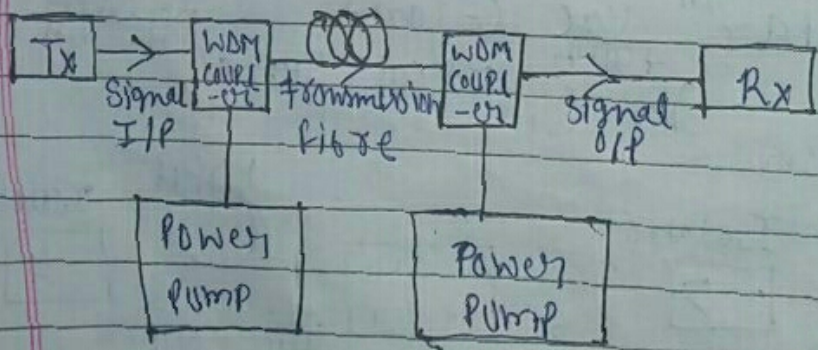 Tx
Signal
I/P
WDM
COUPL
-er
transmission
fibre
WDM
COUPL
-er
Signal
O/P
Rx
Power
PUMP
Power
PUMP